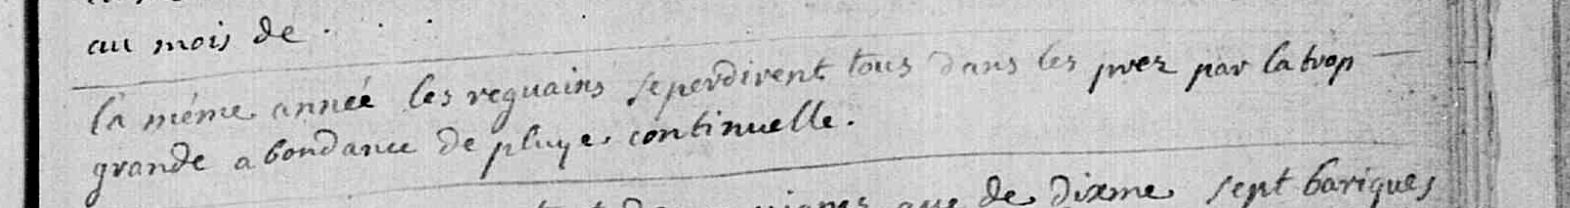 au mois de . . . .
la méme année les reguains seperdirent tous dans les prez par la trop
grande abondance de pluye continuelle.
vignes que de dixme sept bariques